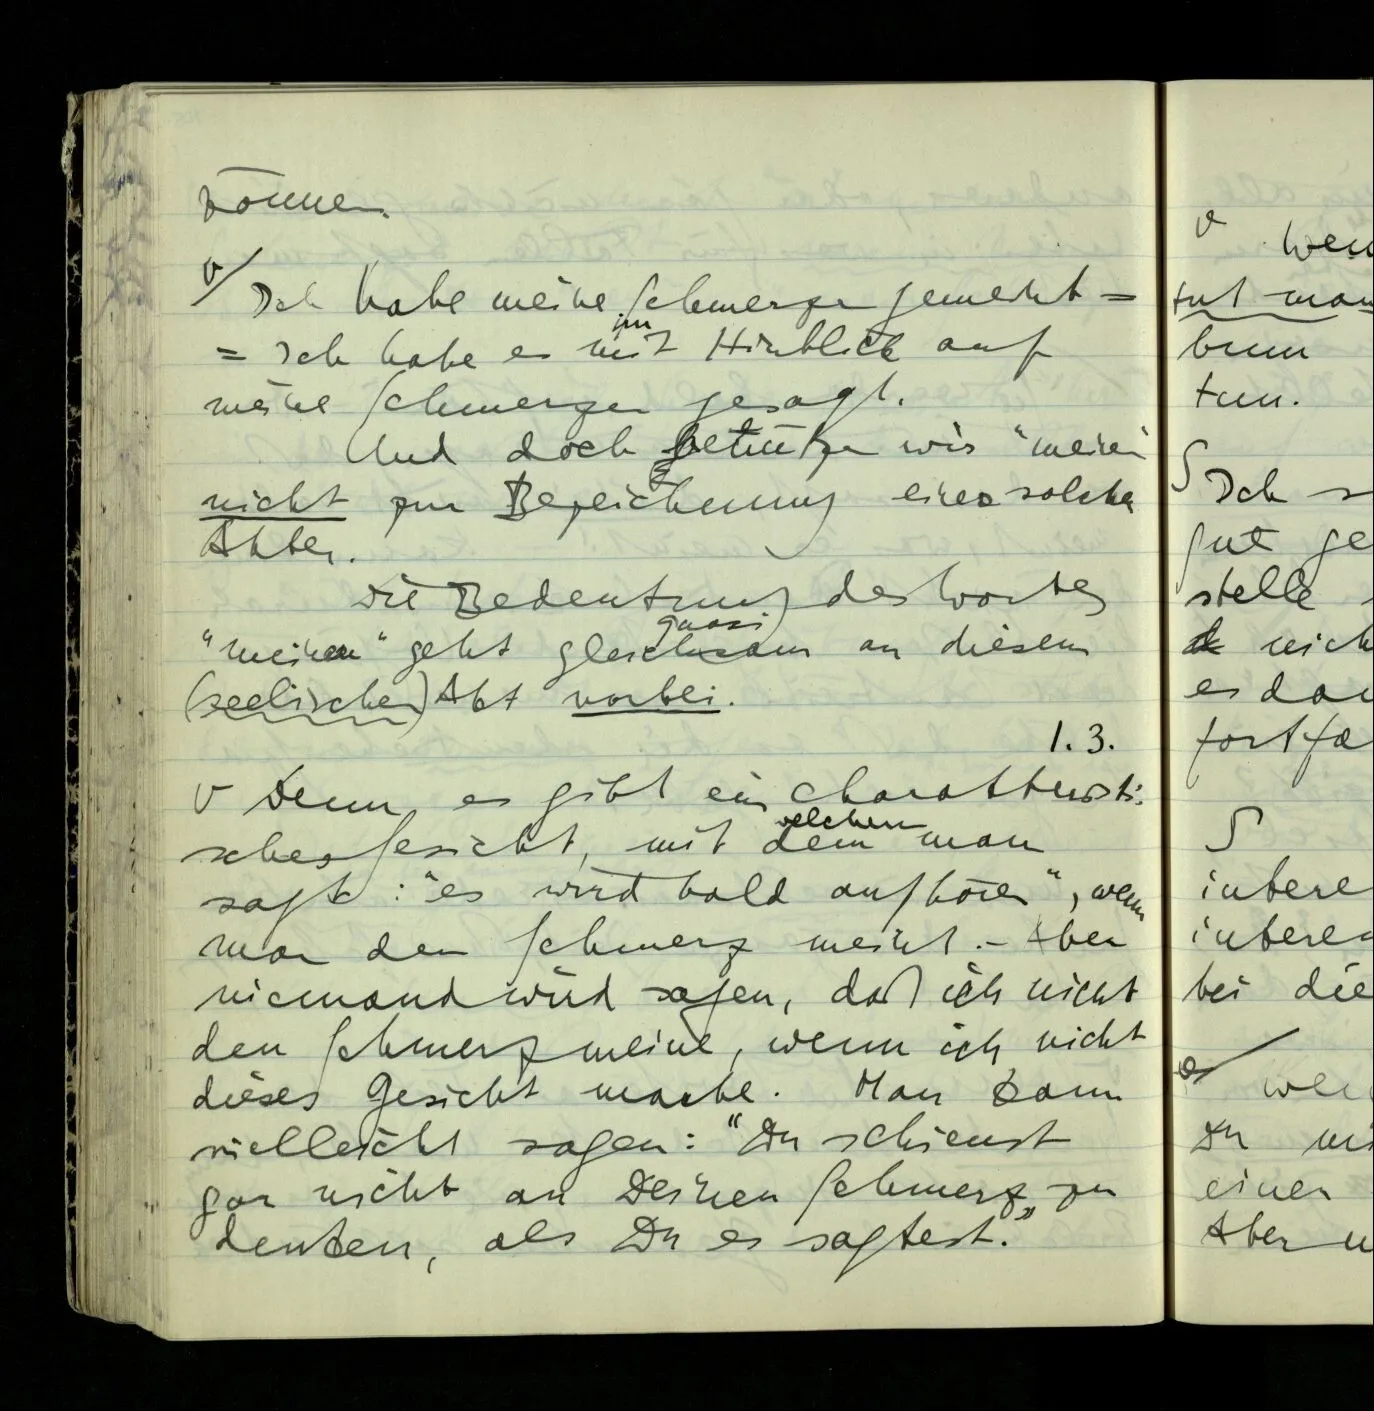 können.
v/ Ich habe meine Schmerzen gemeint =
im
= Ich habe es mit Hinblick auf
meine Schmerzen gesagt.
Und doch benützen wir "meinen"
nicht zur Bezeichnung eines solchen
Aktes.
Die Bedeutung des Wortes
quasi
"meinen" geht gleichsam an diesem
(seelischen) Akt vorbei.
1. 3.
v Denn, es gibt ein charakteristi-
welchem
sches Gesicht, mit dem man
sagt: "es wird bald aufhören", wenn
man den Schmerz meint. – Aber
niemand wird sagen, daß ich nicht
den Schmerz meine, wenn ich nicht
dieses Gesicht mache. Man kann
vielleicht sagen: "Du schienst
gar nicht an Deinen Schmerz zu
denken, als Du es sagtest."
v Wen
tut man
tun.
∫ Ich s
gut ge
stelle
nich
es da
fortfa
∫
intere
intere
bei die
we
Du mi
einen
Aber